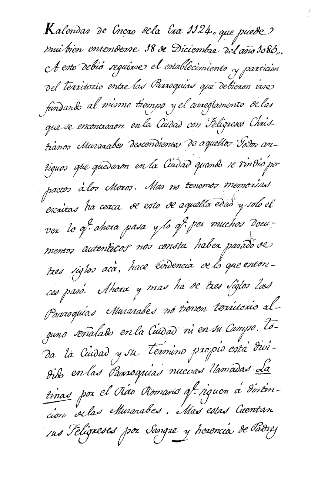 Kalendas de Enero dela Era 1124. que puede
mui bien entenderse 18 de Diciembre del año 1086..
A esto debió seguirse el establecimiento y particion
del territorio entre las Parroquias que debieron irse
fundando al mismo tiempo y el arreglamento de las
que se encontraron en la Ciudad con Feligreses Chris-
tianos Muzarabes descendientes de aquellos Godos an-
tiguos que quedaron en la Ciudad quando se rindió por
pactos à los Moros. Mas no tenemos memorias
escritas ha cerca de esto de aquella edad y solo el
ver lo qe. ahora pasa y lo qe. por muchos docu-
mentos autenticos nos consta haber pasado de
tres siglos acà, hace evidencia de lo que enton-
ces pasó. Ahora y mas ha de tres siglos las
Parroquias Muzarabes no tienen territorio al-
guno señalado en la Ciudad ni en su Campo. to-
da la Ciudad y su termino propio està divi-
dido en las Parroquias nuevas llamadas La
tinas por el Rito Romano qe. siguen à distin-
cion de las Muzarabes. Mas estas cuentan
sus Feligreses por Sangre y herencia de Padres